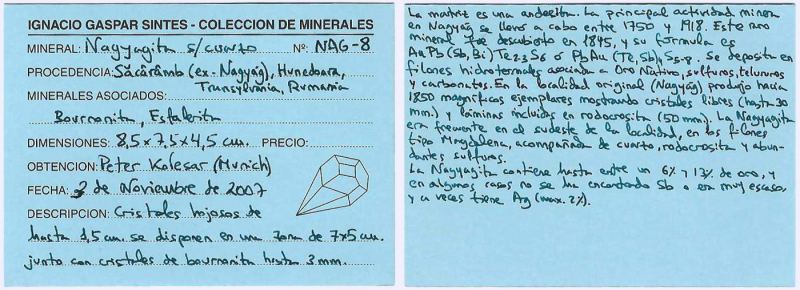 IGNACIO GASPAR SINTES - COLECCION DE MINERALES
MINERAL: Nagyagita s/cuarzo Nº: NAG-8
PROCEDENCIA: Săcărâmb (ex-Nagyág), Hunedoara,
Transylvania, Rumania
MINERALES ASOCIADOS:
Bournonita, Esfalerita
DIMENSIONES: 8,5 x 7,5 x 4,5 cm. PRECIO:
OBTENCION: Peter Kolesar (Munich)
FECHA: 2 de Noviembre de 2007
DESCRIPCION: Cristales hojosos de
hasta 1,5 cm. se disponen en una zona de 7x5 cm.
junto con cristales de bournonita hasta 3 mm.
La matriz es una andesita. La principal actividad minera
en Nagyág se llevó a cabo entre 1750 y 1918. Este raro
mineral fue descubierto en 1845, y su formula es
AuPb(Sb,Bi)Te2-3S6 ó PbAu(Te,Sb)4S5-8. Se deposita en
filones hidrotermales asociada a Oro Nativo, sulfuros, telururos
y carbonatos. En la localidad original (Nagyág) produjo hacia
1850 magníficas ejemplares mostrando cristales libres (hasta 30
mm.) y láminas incluidas en rodocrosita (50 mm). La Nagyagita
era frecuente en el sudeste de la localidad, en los filones
tipo Magdalena, acompañada de cuarzo, rodocrosita y abun-
dantes sulfuros.
La Nagyagita contiene hasta entre un 6% y 13% de oro, y
en algunos casos no se ha encontrado Sb o en muy escaso,
y a veces tiene Ag (max. 2%).